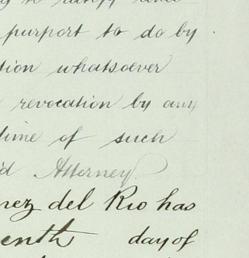 to ratify and
purport to do by
tion whatsoever
revocation by any
time of such
d Attorney
nez del Rio has
enth day of